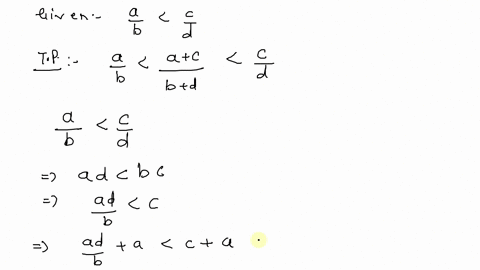 Given:- a/b < c/d
T.P :- a/b < a+c/b+d < c/d
a/b < c/d
=> ad < bc
=> ad/b < c
=> ad/b + a < c + a